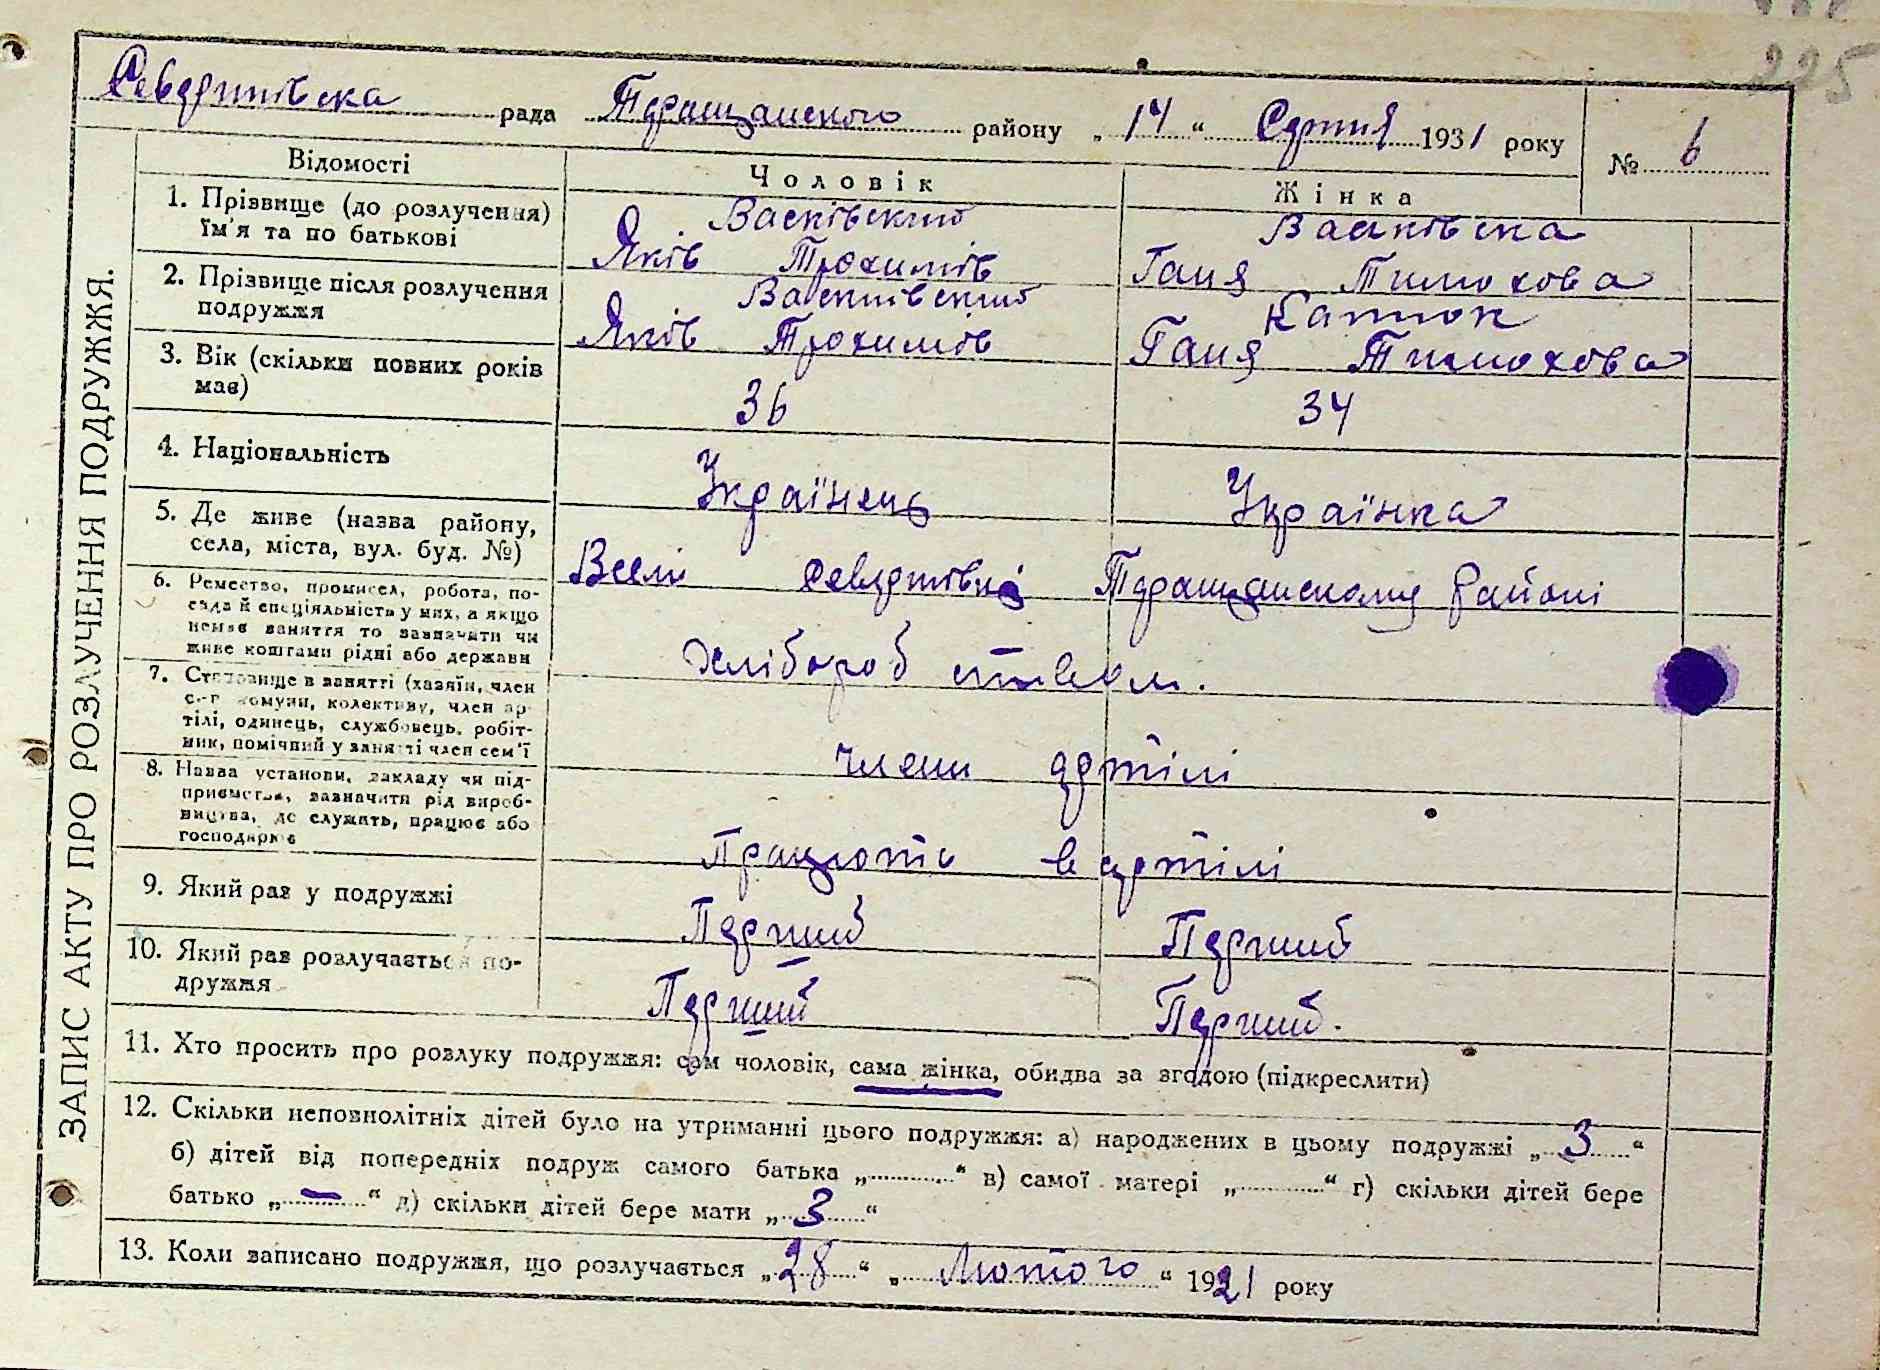 225
Северинівська рада Таращанского району „14“ Серпня 1931 року № 6
ЗАПИС АКТУ ПРО РОЗЛУЧЕННЯ ПОДРУЖЖЯ.
Відомості Чоловік Жінка
1. Прізвище (до розлучення) Васківский Васківска
їм'я та по батькові Яків Трохимів Ганя Тимохова
2. Прізвище після розлучення Васкнівский
подружжя Яків Трохимів Ганя Тимохова
3. Вік (скільки повних років
має) 36 34
4. Національність Українець Українка
5. Де живе (назва району,
села, міста, вул. буд. №) Вселі Северинівкі Таращанскому районі
6. Ремество, промисел, робота, по-
сада й спеціяльність у них, а якщо
немає заняття то зазначити чи
живе коштами рідні або держави хлібороб
7. Становище в занятті (хазяїн, член
с.-г комуни, колективу, член ар-
тілі, одинець, службовець, робіт-
ник, помічний у занятті член сем'ї члени артілі
8. Назва установи, закладу чи під-
приємства, зазначити рід вироб-
ництва, де служить, працює або
господарює Працюють в артілі
9. Який раз у подружжі Перший Перший
10. Який раз розлучається по-
дружжя Перший Перший.
11. Хто просить про розлуку подружжя: сам чоловік, сама жінка, обидва за згодою (підкреслити)
12. Скільки неповнолітніх дітей було на утриманні цього подружжя: а) народжених в цьому подружжі „3“
б) дітей від попередніх подруж самого батька „............“ в) самої матері „............“ г) скільки дітей бере
батько „—“ д) скільки дітей бере мати „3“
13. Коли записано подружжя, що розлучається „28“ „Лютого“ 1921 року